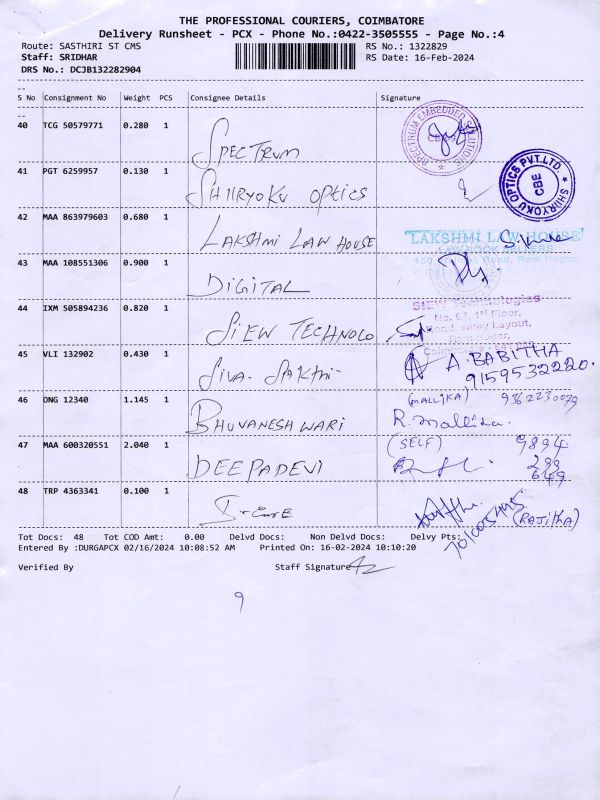 THE PROFESSIONAL COURIERS, COIMBATORE
Delivery Runsheet - PCX - Phone No.:0422-3505555 - Page No.:4
Route: SASTHIRI ST CMS RS No.: 1322829
Staff: SRIDHAR RS Date: 16-Feb-2024
DRS No.: DCJB132282904
S No Consignment No Weight PCS Consignee Details Signature
40 TCG 50579771 0.280 1 SPECTRUM
SPECTRUM EMBEDDED SOLUTIONS
41 PGT 6259957 0.130 1 SHIRYOKU OPTICS
SHIRYOKU OPTICS PVT.LTD. CBE
42 MAA 863979603 0.680 1 LAKSHMI LAW HOUSE
LAKSHMI LAW HOUSE
43 MAA 108551306 0.900 1 DIGITAL
44 IXM 505894236 0.820 1 SIEW TECHNOLO
SIEW Technologies
No. 63, 1st Floor,
Layout,
Ram Nagar,
45 VLI 132902 0.430 1 SIVA. SAKTHI
A. BABITHA
9159532220.
46 ONG 12340 1.145 1 BHUVANESHWARI
(MALLIKA) 9362230079
R. Mallika.
47 MAA 600320551 2.040 1 DEEPADEVI
(SELF) 9894
299
649
48 TRP 4363341 0.100 1
(RAJITHA)
Tot Docs: 48 Tot COD Amt: 0.00 Delvd Docs: Non Delvd Docs: Delvy Pts:
Entered By :DURGAPCX 02/16/2024 10:08:52 AM Printed On: 16-02-2024 10:10:20
Verified By Staff Signature
9